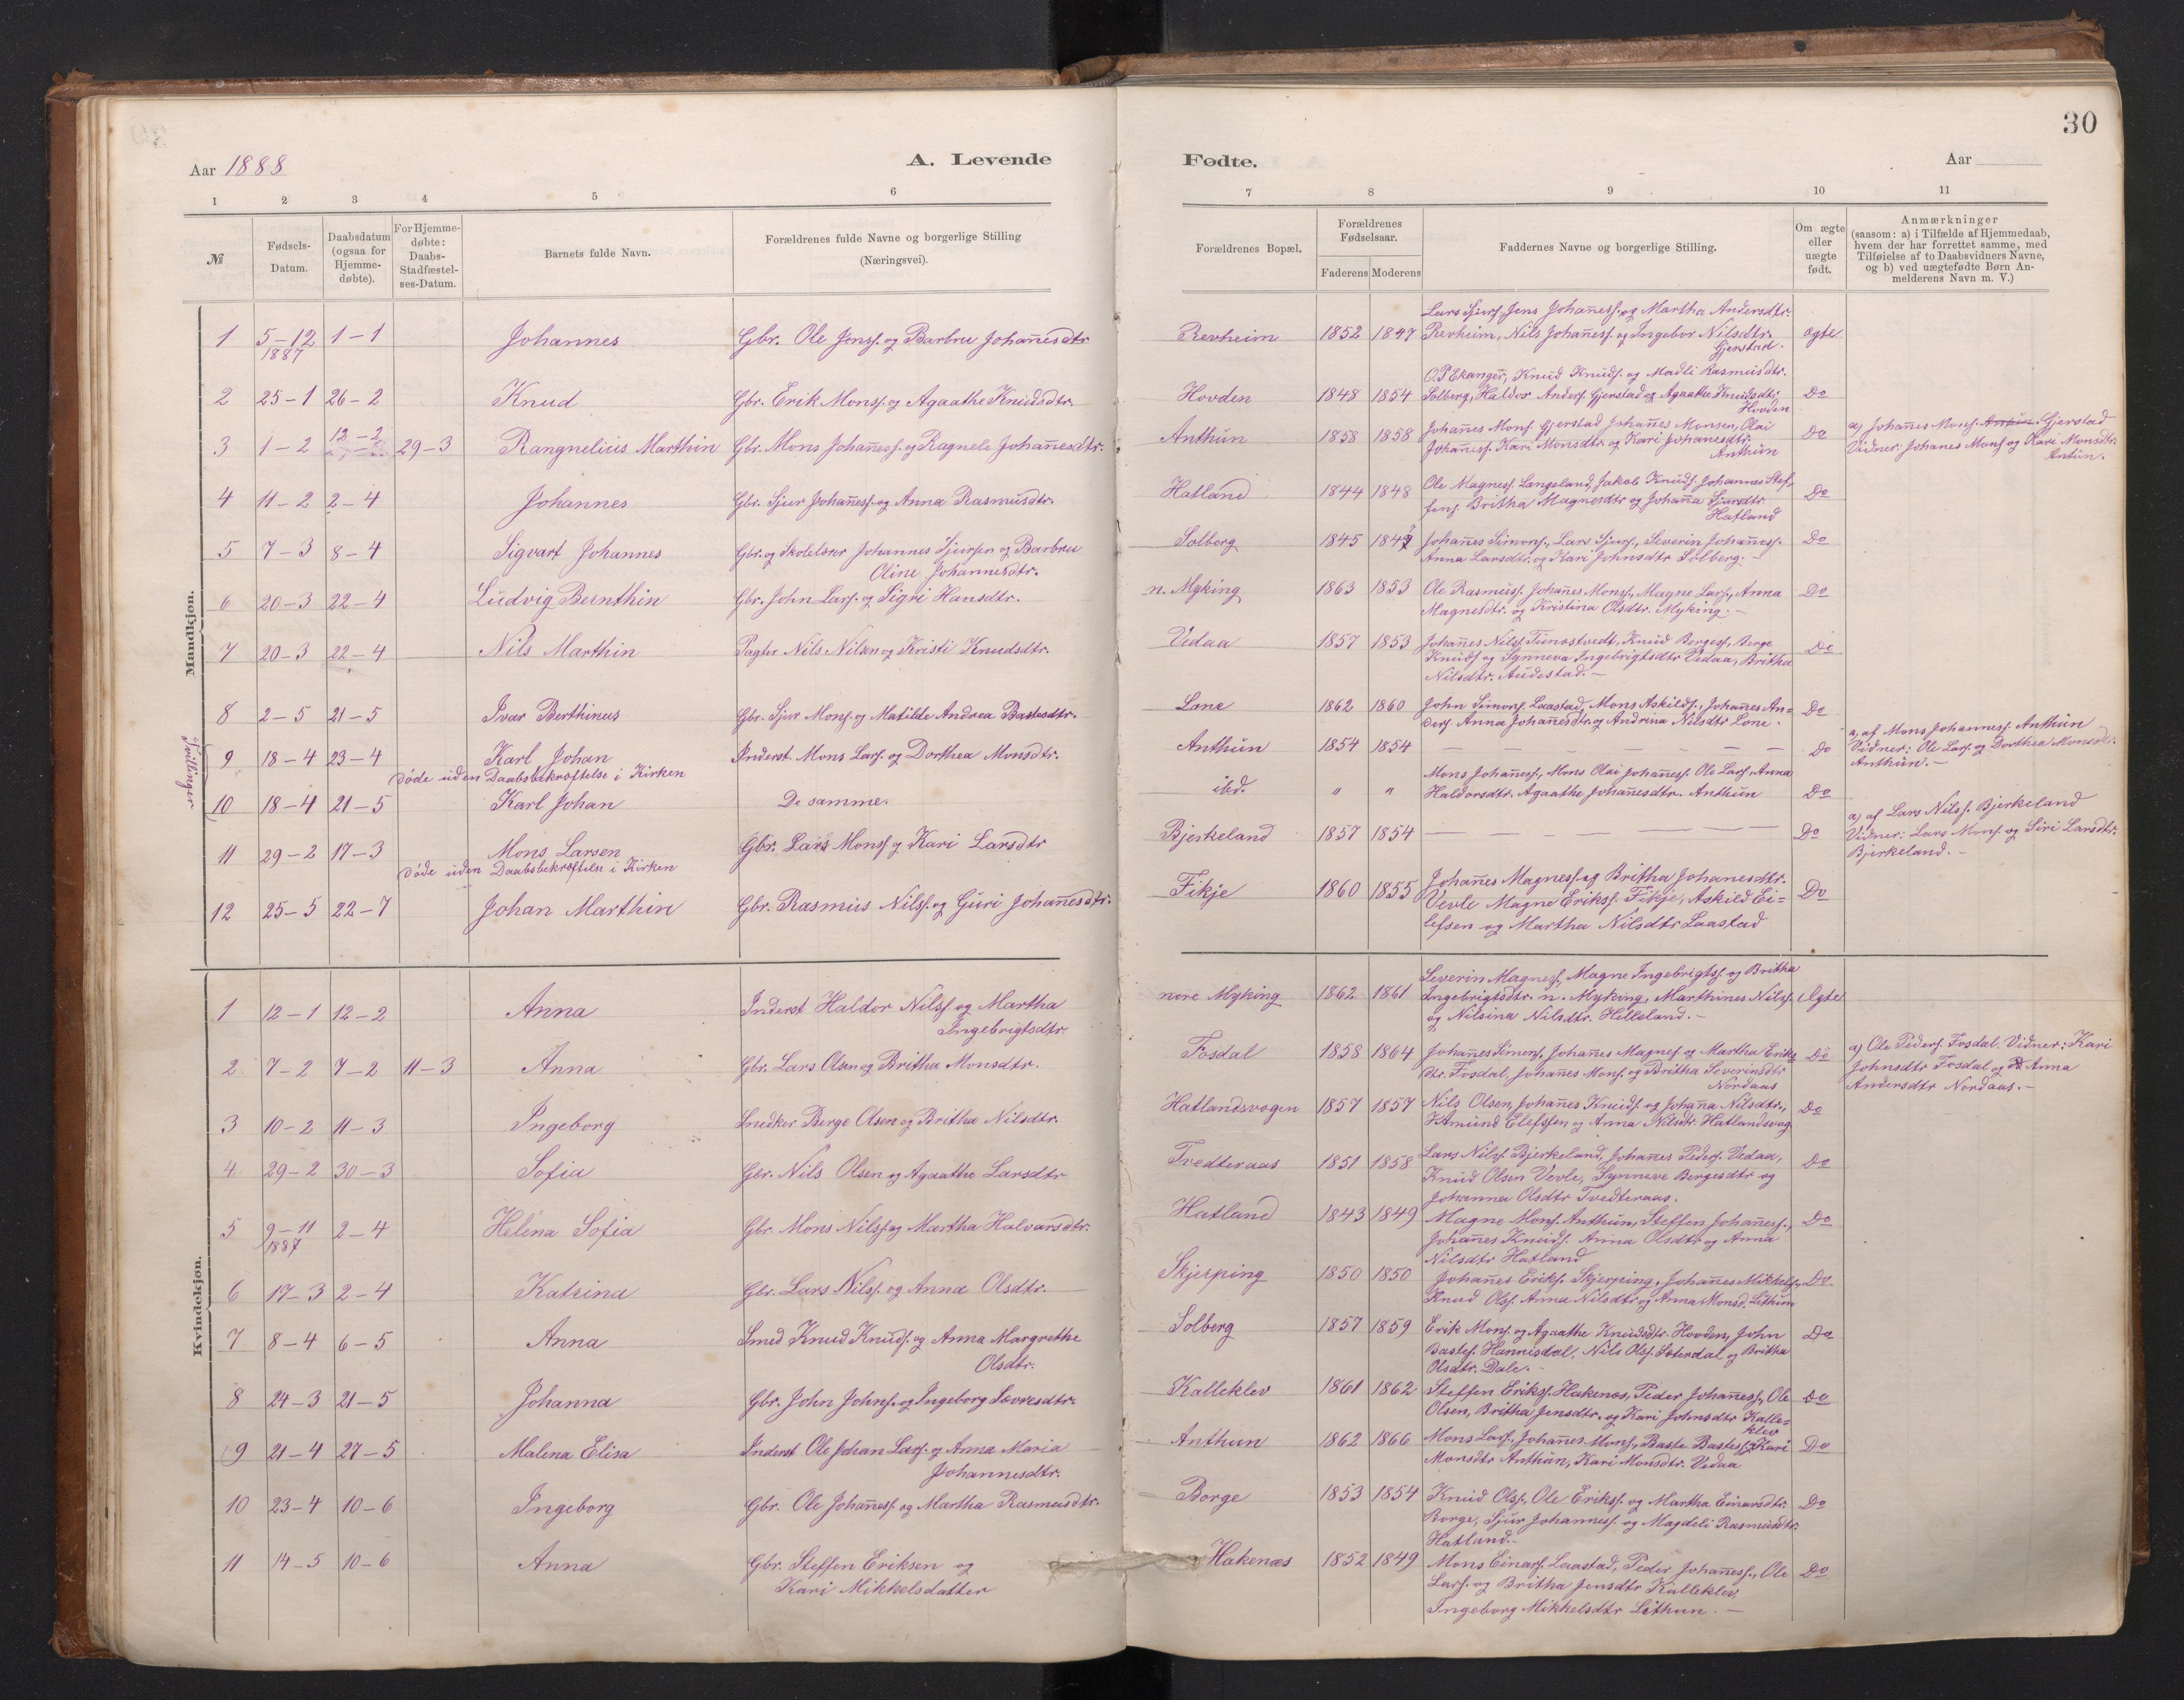 30
Aar 1888
A. Levende
Fødte.
Aar
1 2 3 4 5 6 7 8 9 10 11
№
Fødsels-
Datum.
Daabsdatum
(ogsaa for
Hjemme-
døbte).
For Hjemme-
døbte:
Daabs-
Stadfæstel-
ses-Datum.
Barnets fulde Navn.
Forældrenes fulde Navne og borgerlige Stilling
(Næringsvei).
Forældrenes Bopæl.
Forældrenes
Fødselsaar.
Faderens Moderens
Faddernes Navne og borgerlige Stilling.
Om ægte
eller
uægte
født.
Anmærkninger
(saasom: a) i Tilfælde af Hjemmedaab,
hvem der har forrettet samme, med
Tilføielse af to Daabsvidners Navne,
og b) ved uægtefødte Børn An-
melderens Navn m. V.)
Mandkjøn.
1 5-12 1-1 Johannes Gbr. Ole Jensf. og Barbru Johan̄esdtr
1887
Revheim 1852 1847
Lars Sjursf. Jens Johan̄esf. og Martha Andersdtr.
Revheim, Nils Johan̄esf. og Ingebor Nilsdtr.
Gjerstad.
ægte
2 25-1 26-2 Knud Gbr. Erik Monsf. og Agaathe Knudsdtr.
Hovden 1848 1854
O.P. Ekanger, Knud Knudsf. og Madli Rasmusdtr.
Solberg, Haldor Andersf. Gjerstad og Agaathe Knudsdtr.
Hovden
Do
3 1-2 12-2 29-3 Rangnelius Marthin Gbr. Mons Johan̄esf. og Ragnele Johan̄esdtr.
Anthun 1858 1858
Johan̄es Monsf. Gjerstad Johan̄es Monsen, Olai
Johan̄esf. Kari Monsdtr. og Kari Johanesdtr.
Anthun
Do
a) Johan̄es Monsf. Gjerstad
Vidner: Johanes Monsf og Kari Monsdtr.
Antun.
4 11-2 2-4 Johannes Gbr. Sjur Johan̄esf. og Anna Rasmusdtr.
Hatland 1844 1848
Ole Magnesf. Langeland, Jakob Knudsf. Johannes Stef-
fensf. Britha Magnesdtr og Johan̄a Sjursdtr
Hatland
Do
5 7-3 8-4 Sigvart Johannes Gbr. og Skolelærer Johannes Sjursen og Barbru
Oline Johannesdtr.
Solberg 1845
Johan̄es Simonsf., Lars Sjursf., Severin Johan̄esf.
Anna Larsdtr. og Kari Johnsdtr Solberg.-
Do
6 20-3 22-4 Ludvig Bernthin Gbr. John Larsf. og Sigri Hansdtr.
n. Myking 1863 1853
Ole Rasmusf. Johan̄es Monsf., Magne Larsf., Anna
Magnesdtr. og Kristina Olsdtr. Myking.-
Do
7 20-3 22-4 Nils Marthin Pagter Nils Nilsen og Kristi Knudsdtr.
Vedaa 1857 1853
Johan̄es Nilsf. Tunestvedt, Knud Bergesf. Berge
Knudsf og Synneva Ingebrigtsdtr Vedaa, Britha
Nilsdtr. Audestad.-
Do
8 2-5 21-5 Ivar Berthinus Gbr. Sjur Monsf. og Matilde Andrea Bastesdtr.
Lone 1862 1860
John Simonsf. Laastad, Mons Askildsf., Johan̄es An=
dersf. Anna Johan̄esdtr. og Andrina Nilsdtr Lone.
Do
Tvillinger
9 18-4 23-4 Karl Johan Inderst. Mons Larsf. og Dorthea Monsdtr.
døde uden Daabsbekræftelse i Kirken
Anthun 1854 1854 Do
a, af Mons Johannesf. Anthun
Vidner: Ole Larsf. og Dorthea Monsdtr.
Anthun.-
10 18-4 21-5 Karl Johan De samme.
ibd. " "
Mons Johan̄esf., Mons Olai Johan̄esf. Ole Larsf., Anna
Haldorsdtr. Agaathe Johan̄esdtr. Anthun
Do
11 29-2 17-3 Mons Larsen Gbr. Lars Monsf og Kari Larsdtr
døde uden Daabsbekræftelse i Kirken
Bjerkeland 1857 1854 Do
a) af Lars Nilsf. Bjerkeland
Vidner: Lars Monsf. og Siri Larsdtr.
Bjerkeland.-
12 25-5 22-7 Johan Marthin Gbr. Rasmus Nilsf. og Guri Johan̄esdtr.
Fikje 1860 1855
Johan̄es Magnesf. og Britha Johanesdtr.
Vevle Magne Eriksf. Fikje, Askild Ei=
lefsen og Martha Nilsdtr Laastad
Do
Kvindekjøn.
1 12-1 12-2 Anna Inderst Haldor Nilsf. og Martha
Ingebrigtsdtr.
nore Myking 1862 1861
Severin Magnesf., Magne Ingebrigtsf. og Britha
Ingebrigtsdtr. n. Myking, Marthines Nilsf.
og Nilsina Nilsdtr. Helleland.-
Ægte
2 7-2 7-2 11-3 Anna Gbr. Lars Olsen og Britha Monsdtr.
Fosdal 1858 1864
Johan̄es Simonsf., Johan̄es Magnesf. og Martha Eriks
dtr. Fosdal, Johan̄es Monsf. og Britha Severinsdtr
Nordaas
Do
a) Ole Pedersf. Fosdal. Vidner: Kari
Johnsdtr Fosdal og Anna
Andersdtr Nordaas.-
3 10-2 11-3 Ingeborg Snedker Berge Olsen og Britha Nilsdtr.
Hatlandsvogen 1857 1857
Nils Olsen, Johan̄es Knudsf. og Johan̄a Nilsdtr.,
Amund Elefssen, og Anna Nilsdtr. Hatlandsvog
Do
4 29-2 30-3 Sofia Gbr. Nils Olsen og Agaathe Larsdtr
Tvedteraas 1851 1858
Lars Nilsf. Bjerkeland, Johan̄es Pedersf. Vedaa,
Knud Olsen Vevle, Synneve Bergesdtr og
Johanna Olsdtr Tvedteraas.
Do
5 9-11 2-4 Helena Sofia Gbr. Mons Nilsf. og Martha Halvarsdtr.
1887
Hatland 1843 1849
Magne Monsf. Anthun, Steffen Johan̄esf.,
Johan̄es Knudsf. Anna Olsdtr og Anna
Nilsdtr Hatland
Do
6 17-3 2-4 Katrina Gbr. Lars Nilsf. og Anna Olsdtr.
Skjerping 1850 1850
Johan̄es Eriksf. Skjerping, Johan̄es Mikkelsf.,
Knud Olsf. Anna Nilsdtr og Anna Monsd. Lithun
Do
7 8-4 6-5 Anna Smed Knud Knudsf. og Anna Margrethe
Olsdtr.
Solberg 1857 1859
Erik Monsf. og Agaathe Knudsdtr. Hovden, John
Bastesf. Hannisdal, Nils Olsf. Sæterdal og Britha
Olsdtr. Dale.-
Do
8 24-3 21-5 Johanna Gbr. John Johnsf. og Ingeborg Sævresdtr.
Kalleklev 1861 1862
Steffen Eriksf. Hakenæs, Peder Johan̄esf., Ole
Olsen, Britha Jensdtr. og Kari Johnsdtr Kalle=
klev
Do
9 21-4 27-5 Malena Elisa Inderst Ole Johan Larsf. og Anna Maria
Johannesdtr.
Anthun 1862 1866
Mons Larsf., Johan̄es Monsf., Baste Bastesf., Kari
Monsdtr Anthun, Kari Monsdtr. Vedaa
Do
10 23-4 10-6 Ingeborg Gbr. Ole Johan̄esf. og Martha Rasmusdtr.
Borge 1853 1854
Knud Olsf., Ole Eriksf. og Martha Einarsdtr.
Borge, Sjur Johannesf. og Magdeli Rasmusdtr.
Hatland.-
Do
11 14-5 10-6 Anna Gbr. Steffen Eriksen og
Kari Mikkelsdatter
Hakenæs 1852 1849
Mons Einarsf. Laastad, Peder Johan̄esf., Ole
Larsf. og Britha Jensdtr Kalleklev,
Ingeborg Mikkelsdtr Lithun.-
Do